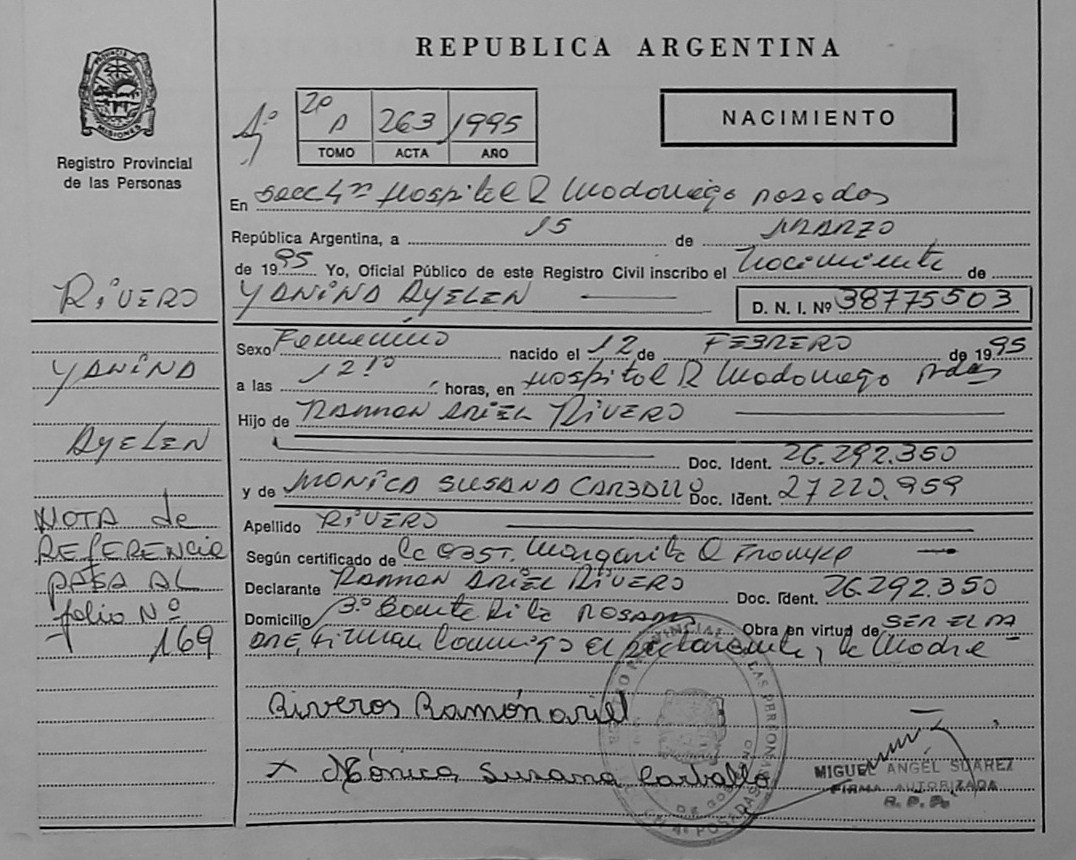 REPUBLICA ARGENTINA
MISIONES
Registro Provincial
de las Personas
2º A 263 1995
TOMO ACTA AÑO
NACIMIENTO
En Secc 4ª Hospital R Madariaga Posadas
República Argentina, a 15 de MARZO
de 1995 Yo, Oficial Público de este Registro Civil inscribo el Nacimiento de
YANINA AYELEN D. N. I. Nº 38775503
Sexo Femenino nacido el 12 de FEBRERO de 1995
a las 12 10 horas, en Hospital R Madariaga Pdas
Hijo de RAMMON ARIEL RIVERO
Doc. Ident. 26.292.350
y de MONICA SUSANA CARBALLO Doc. Ident. 27220.959
Apellido RIVERO
Según certificado de la OBST. Margarita
Declarante RAMMON ARIEL RIVERO Doc. Ident. 26.292.350
Domicilio Obra en virtud de SER EL PA
DRE, Firman Conmigo el declarante y la Madre
Riveros Ramón ariel
x Mónica Susana Carballo
MIGUEL ANGEL SUAREZ
FIRMA AUTORIZADA
R. P. P.
RIVERO
YANINA
AYELEN
NOTA de
REFERENCIA
PASA AL
folio Nº
169